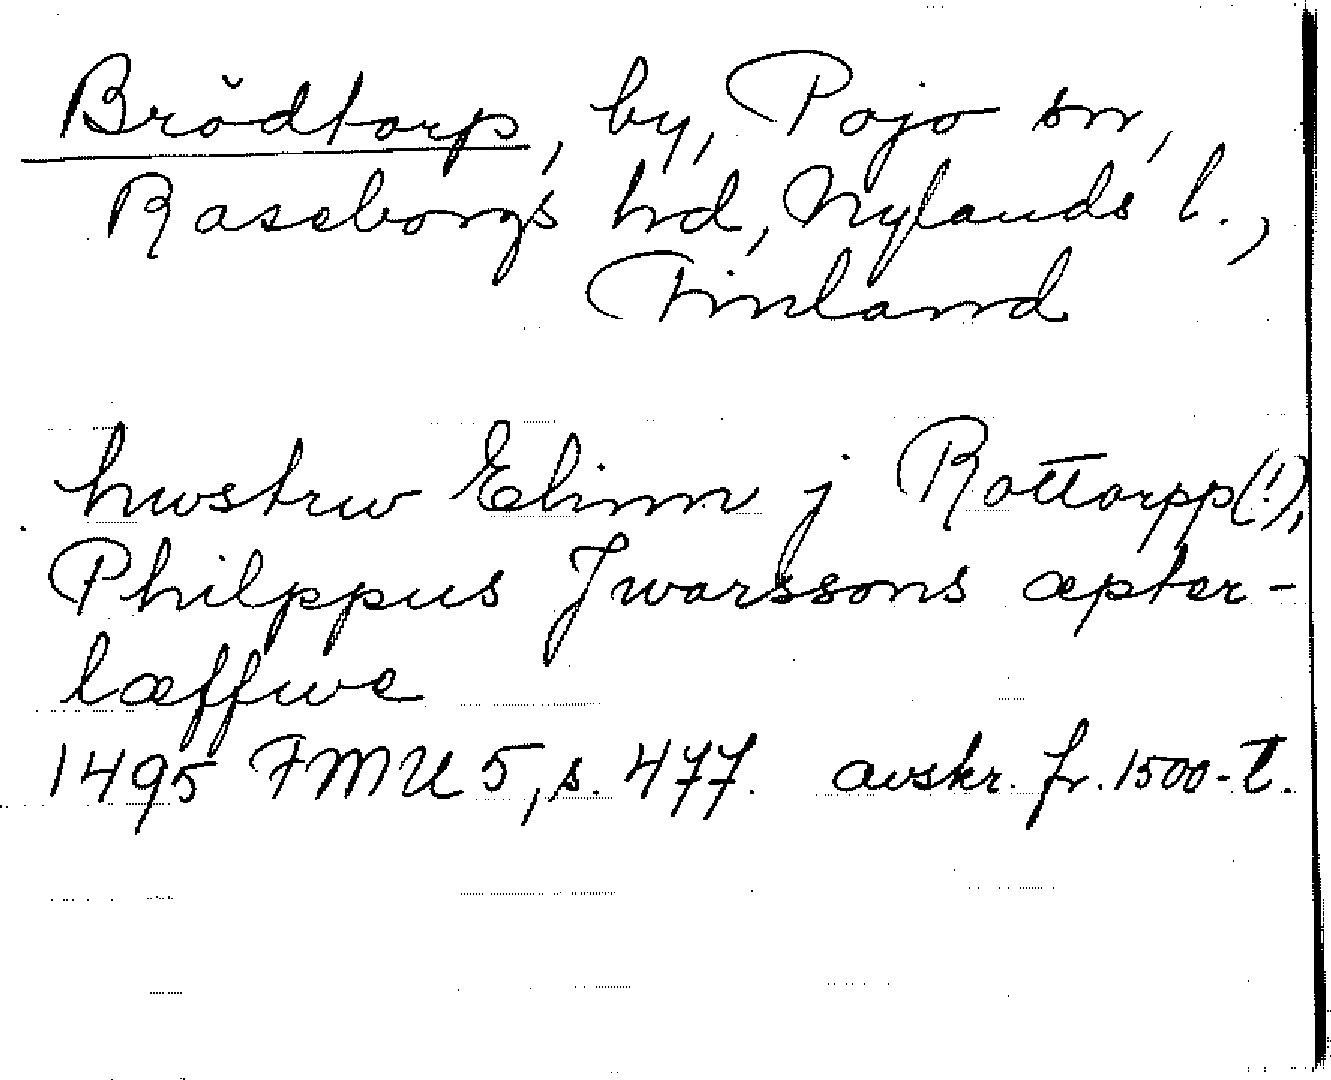 Brödtorp, by, Pojo sn,
Raseborgs hd, Nylands l.,
Finland
hwstrw Elinn j Rottorpp(!),
Philppus Jwarssons æpter-
læffwe
1495 FMU 5, s. 477. avskr. fr. 1500-t.